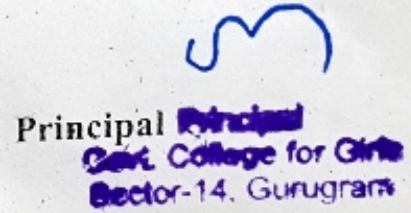 Principal Principal
Govt. College for Girls
Sector-14, Gurugram